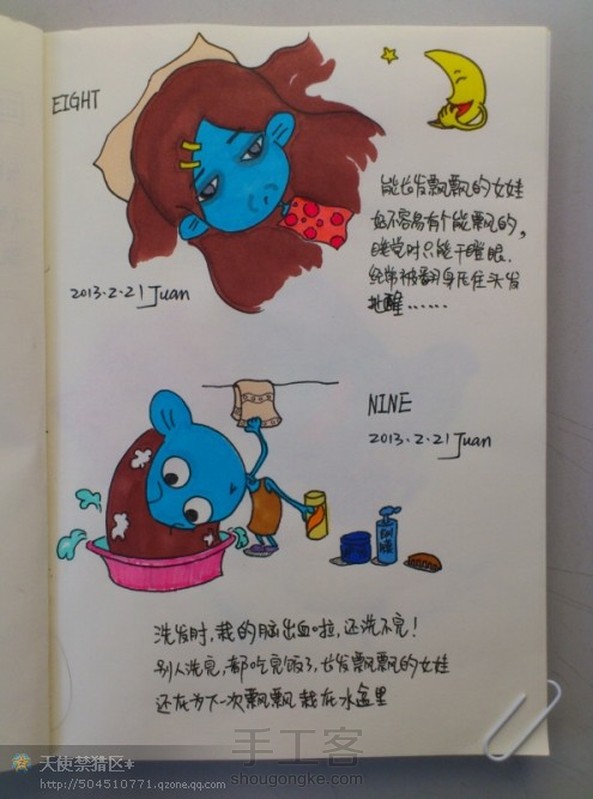 EIGHT
能长发飘飘的女娃
好不容易有个能飘的,
睡觉时只能干瞪眼.
经常被翻身压住头发
扯醒……
2013.2.21 Juan
NINE
2013.2.21 Juan
洗发时,栽的脑出血啦,还洗不完!
别人洗完,都吃完饭了,长发飘飘的女娃
还在为下一次飘飘栽在水盆里
手工客
shougongke.com
天使禁猎区*
http://504510771.qzone.qq.com